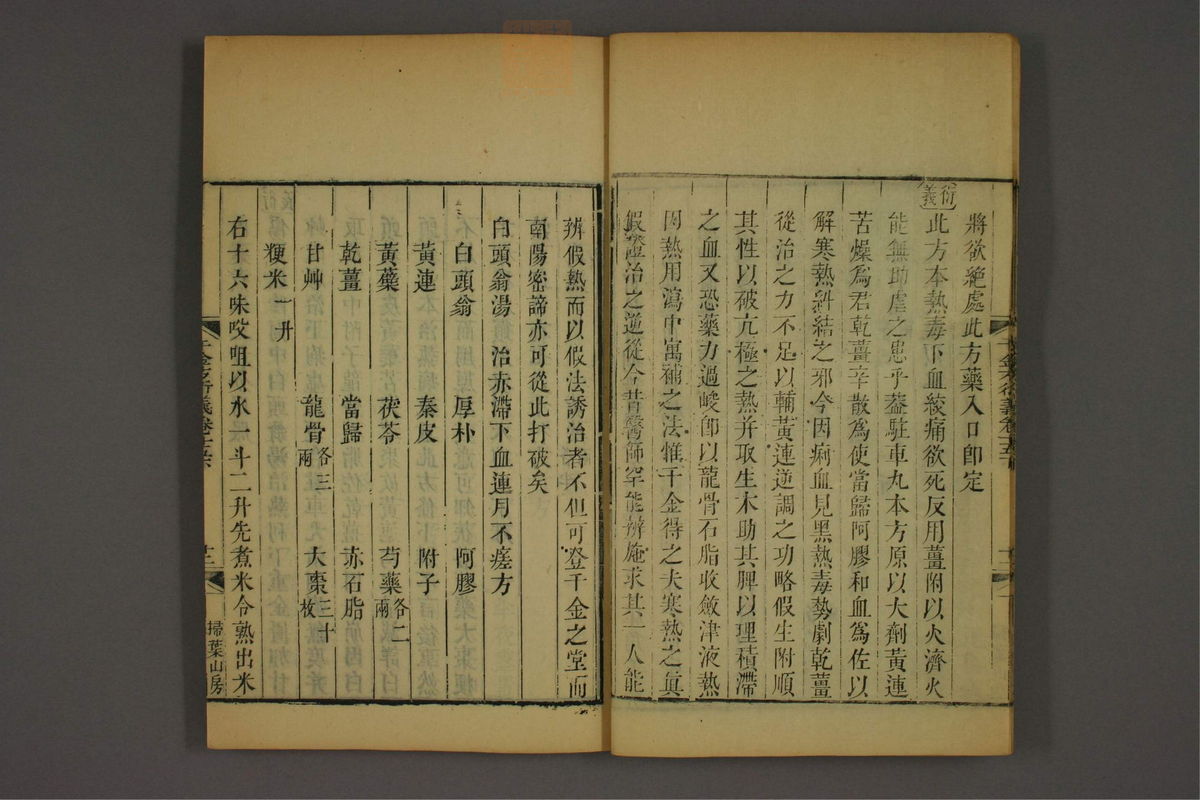 將欲絕處此方藥入口卽定
衍義
此方本熱毒下血絞痛欲死反用薑附以火濟火
能無助虐之患乎葢駐車丸本方原以大劑黃連
苦燥爲君乾薑辛散爲使當歸阿膠和血爲佐以
解寒熱糾結之邪今因痢血見黑熱毒勢劇乾薑
從治之力不足以輔黃連逆調之功略假生附順
其性以破亢極之熱并取生木助其脾以理積滯
之血又恐藥力過峻卽以龍骨石脂收斂津液熱
因熱用瀉中寓補之法惟千金得之夫寒熱之眞
假證治之逆從今昔醫師罕能辨庵求其一人能
辨假熱而以假法誘治者不但可登千金之堂而
南陽密諦亦可從此打破矣
白頭翁湯 治赤滯下血連月不瘥方
白頭翁 厚朴 阿膠
黃連 秦皮 附子
黃蘗 茯苓 芍藥各二兩
乾薑 當歸 赤石脂
甘艸 龍骨各三兩 大棗三十枚
粳米一升
右十六味㕮咀以水一斗二升先煮米令熟出米
千金方衍義卷十五下
十二
掃葉山房